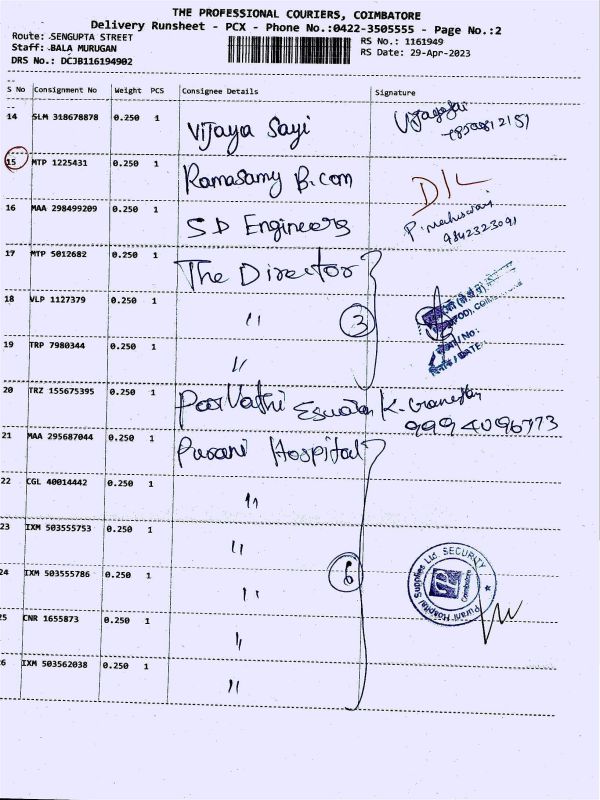 THE PROFESSIONAL COURIERS, COIMBATORE
Delivery Runsheet - PCX - Phone No.:0422-3505555 - Page No.:2
Route: .SENGUPTA STREET
Staff: .BALA MURUGAN
DRS No.: DCJB116194902
RS No.: 1161949
RS Date: 29-Apr-2023
S No Consignment No Weight PCS Consignee Details Signature
14 SLM 318678878 0.250 1 Vijaya Sayi
15 MTP 1225431 0.250 1 Ramasamy B.com D/L
16 MAA 298499209 0.250 1 S D Engineers
9842323091
17 MTP 5012682 0.250 1 The Director
18 VLP 1127379 0.250 1 " 3
19 TRP 7980344 0.250 1 "
20 TRZ 155675395 0.250 1 ParVathi Eswaran K.
9994096773
21 MAA 295687044 0.250 1 Purani Hospital
22 CGL 40014442 0.250 1 "
23 IXM 503555753 0.250 1 "
24 IXM 503555786 0.250 1 " 6
25 CNR 1655873 0.250 1 "
26 IXM 503562038 0.250 1 "
Purani Hospital Supplies Ltd. SECURITY
Coimbatore